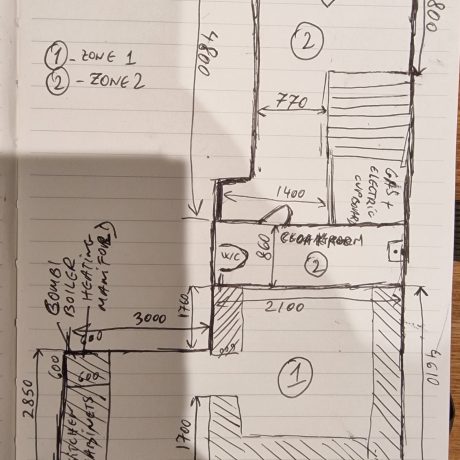 1 - ZONE 1
2 - ZONE 2
4800
2
800
770
GAS +
ELECTRIC
CUPBOARD
1400
CLOAKROOM
W/C
860
2
2100
1760
3000
COMBI
BOILER
HEATING
MANIFOLD
600
2850
KITCHEN
CABINETS
1
4610
1700